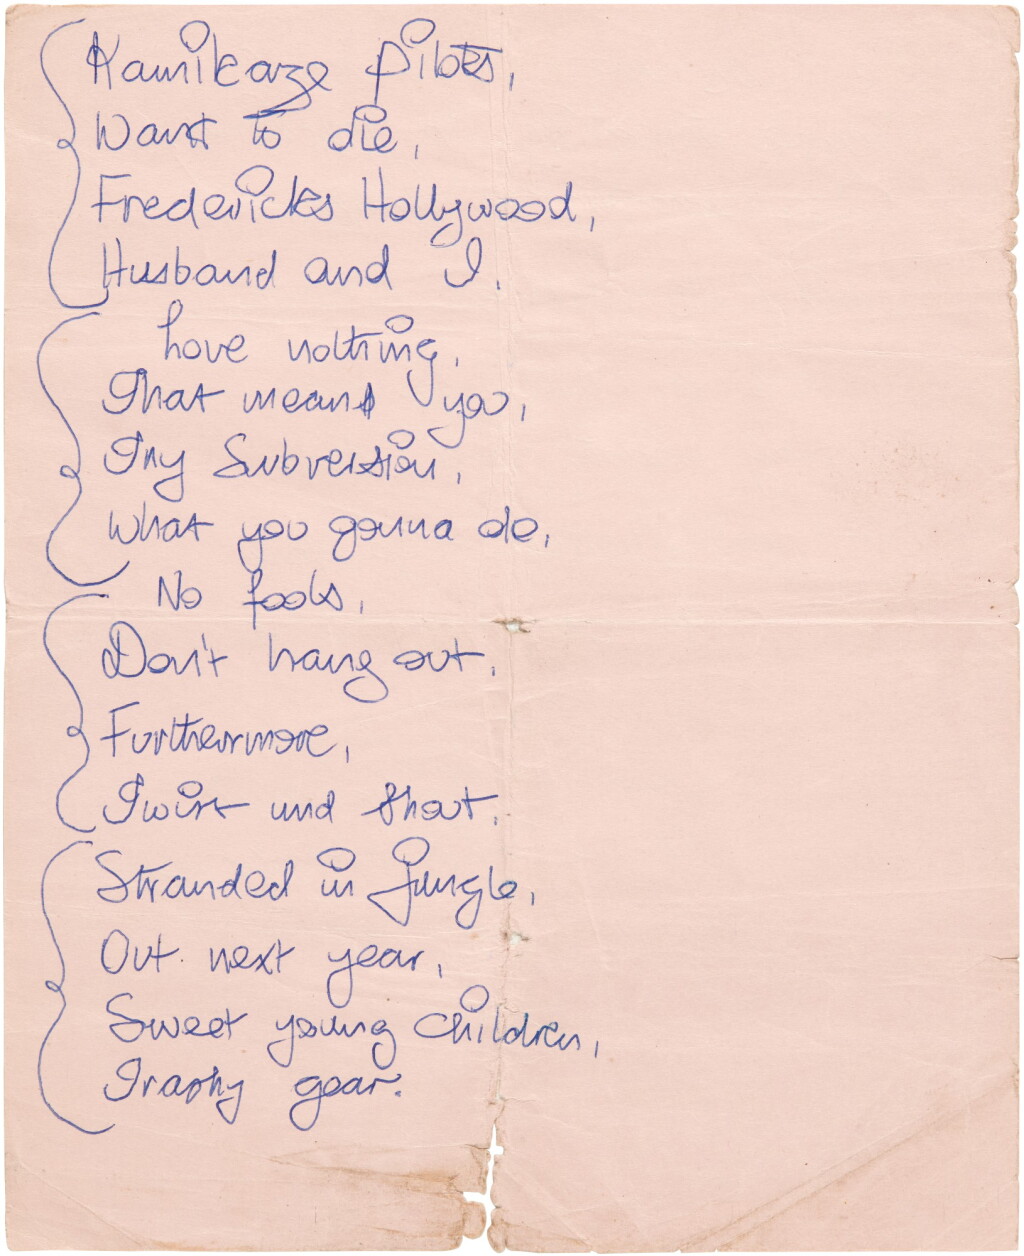 Kamikaze pilots,
Want to die,
Fredericks Hollywood,
Husband and I.
Love nothing,
That means you,
Try Subversion,
What you gonna do,
No fools,
Don't hang out.
Furthermore,
Twist and Shout.
Stranded in jungle,
Out next year,
Sweet young children,
Trashy gear.